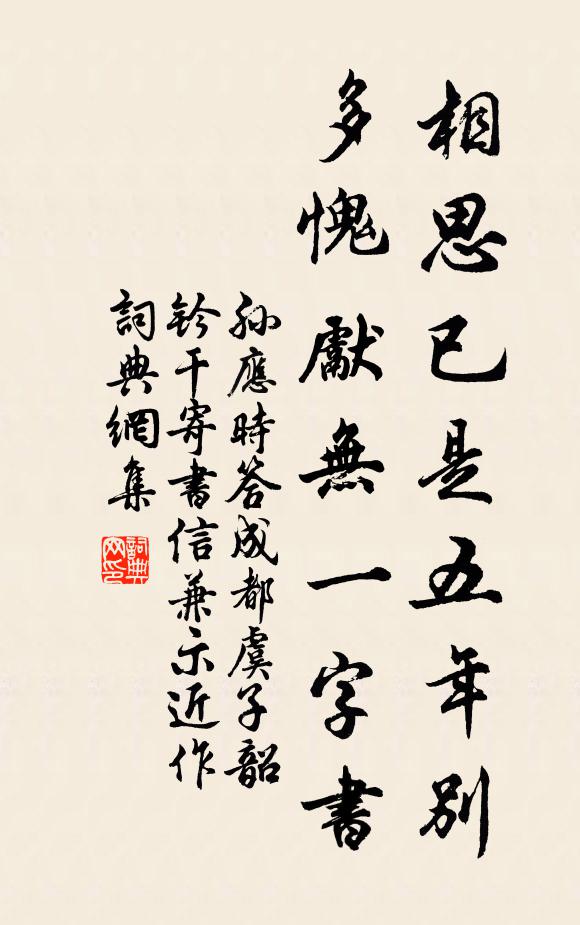 相思已是五年別
多愧獻無一字書
孫應時答成都虞子韶
鈐干寄書信兼示近作
詞典網集
詞典網印